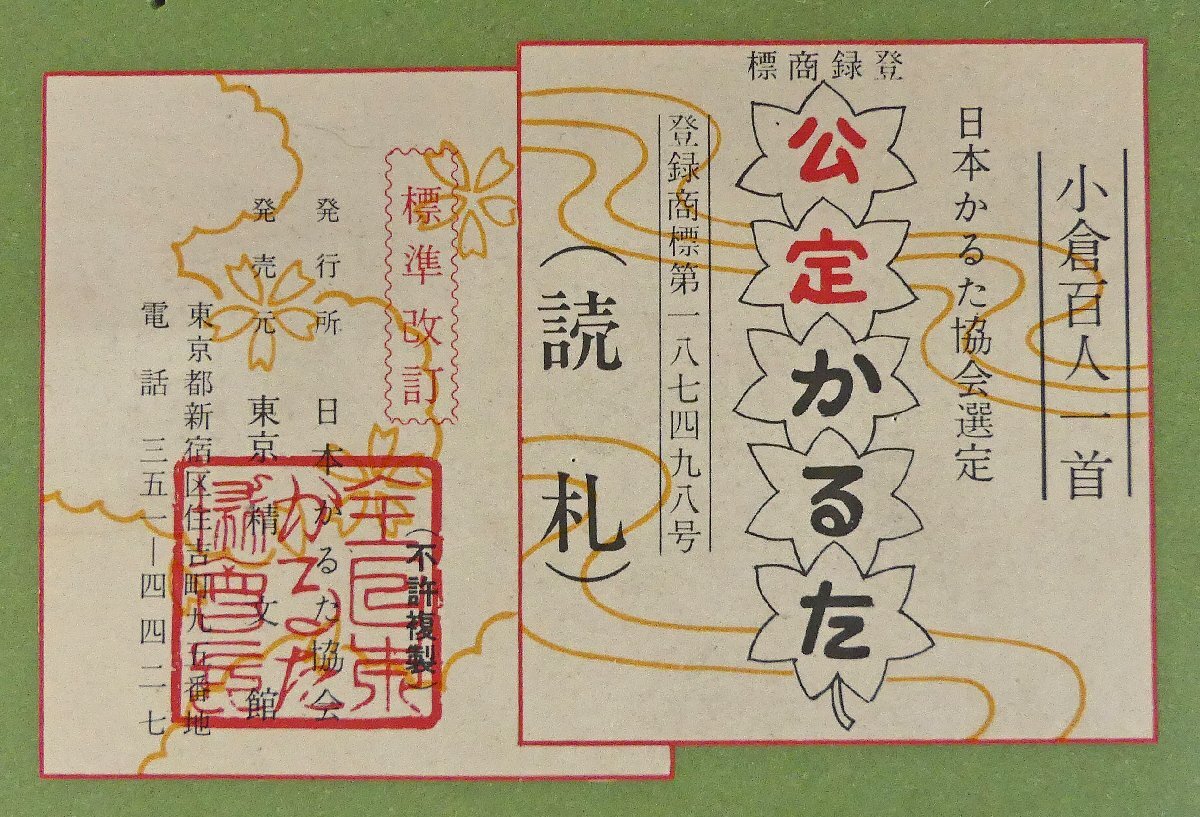 小倉百人一首
日本かるた協会選定
登録商標
公定かるた
登録商標第一八七四九八号
(読札)
標準改訂
(不許複製)
発行所 日本かるた協会
発売元 東京 精文館
東京都新宿区住吉町九五番地
電話 三五一―四四二七
全日本
かるた